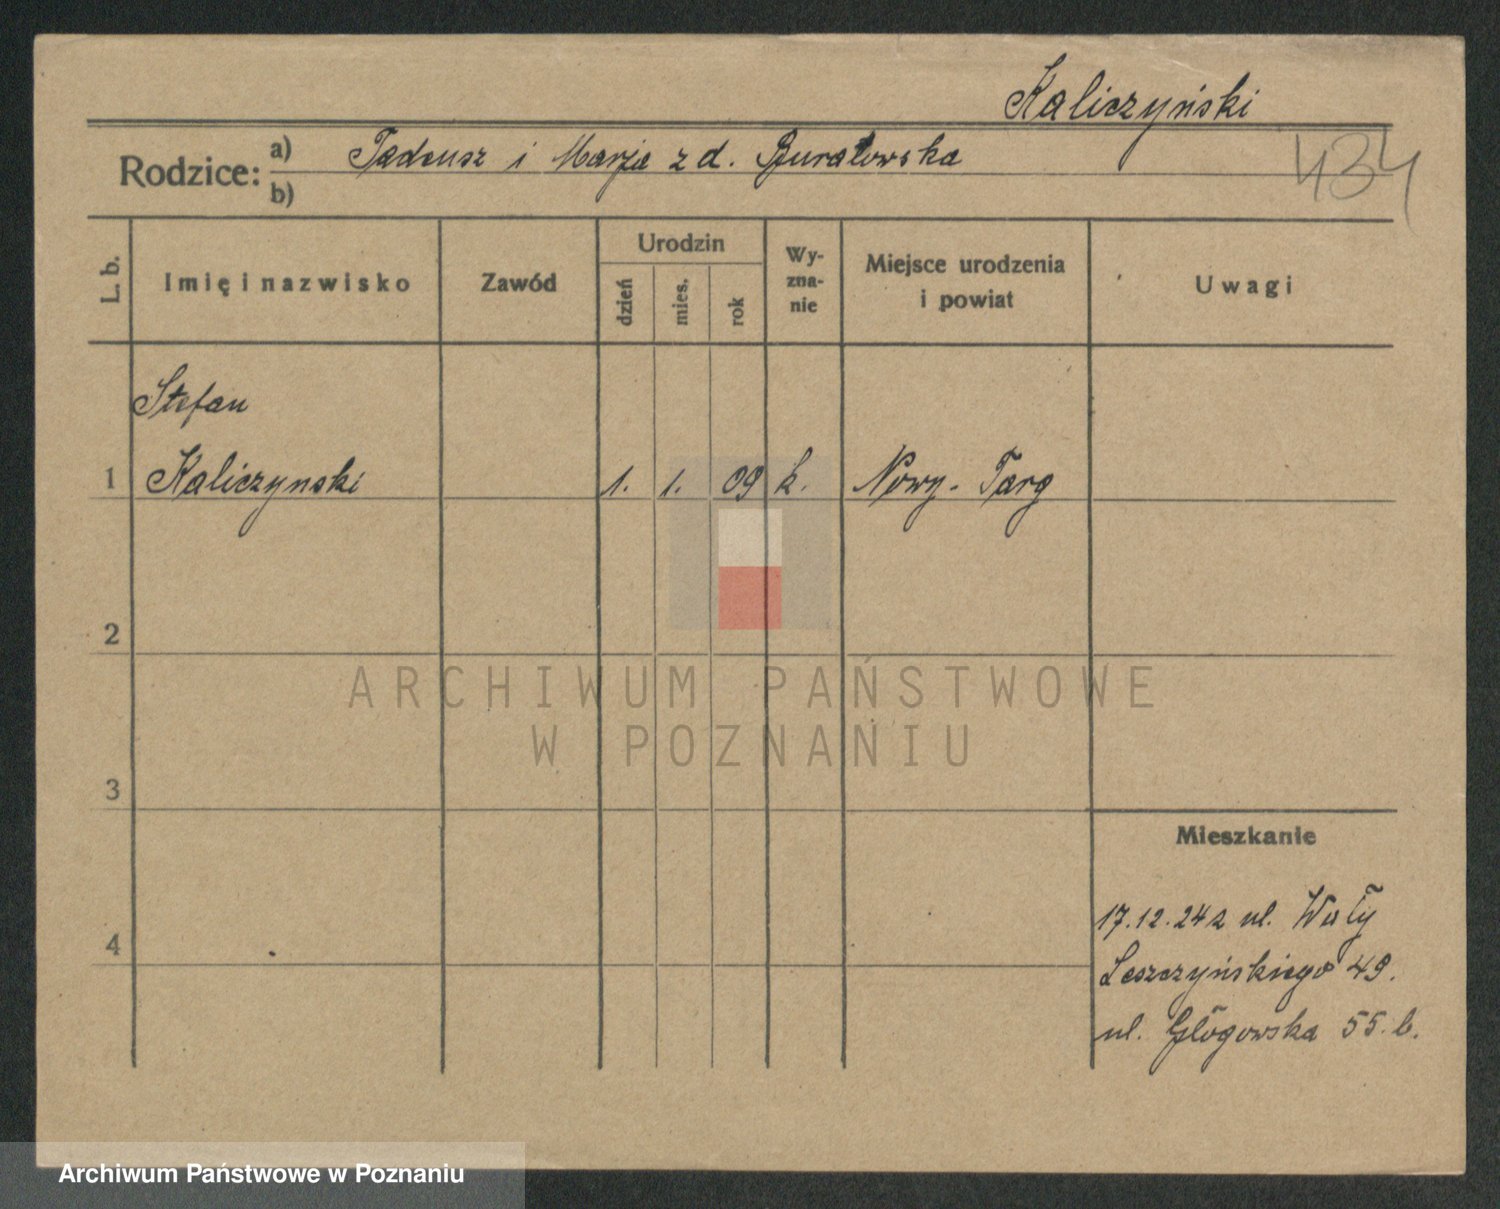 Kaliczyński
Rodzice: a) Tadeusz i Marja z d. Buratowska
b)
434
L. b.
Imię i nazwisko
Zawód
Urodzin
dzień
mies.
rok
Wy-
zna-
nie
Miejsce urodzenia
i powiat
Uwagi
Stefan
1 Kaliczynski 1. 1. 09 k. Nowy-Targ
2
ARCHIWUM PAŃSTWOWE
W POZNANIU
3
Mieszkanie
4
17.12.24 z ul. Wały
Leszczyńskiego 49.
ul. Głogowska 55. b.
Archiwum Państwowe w Poznaniu